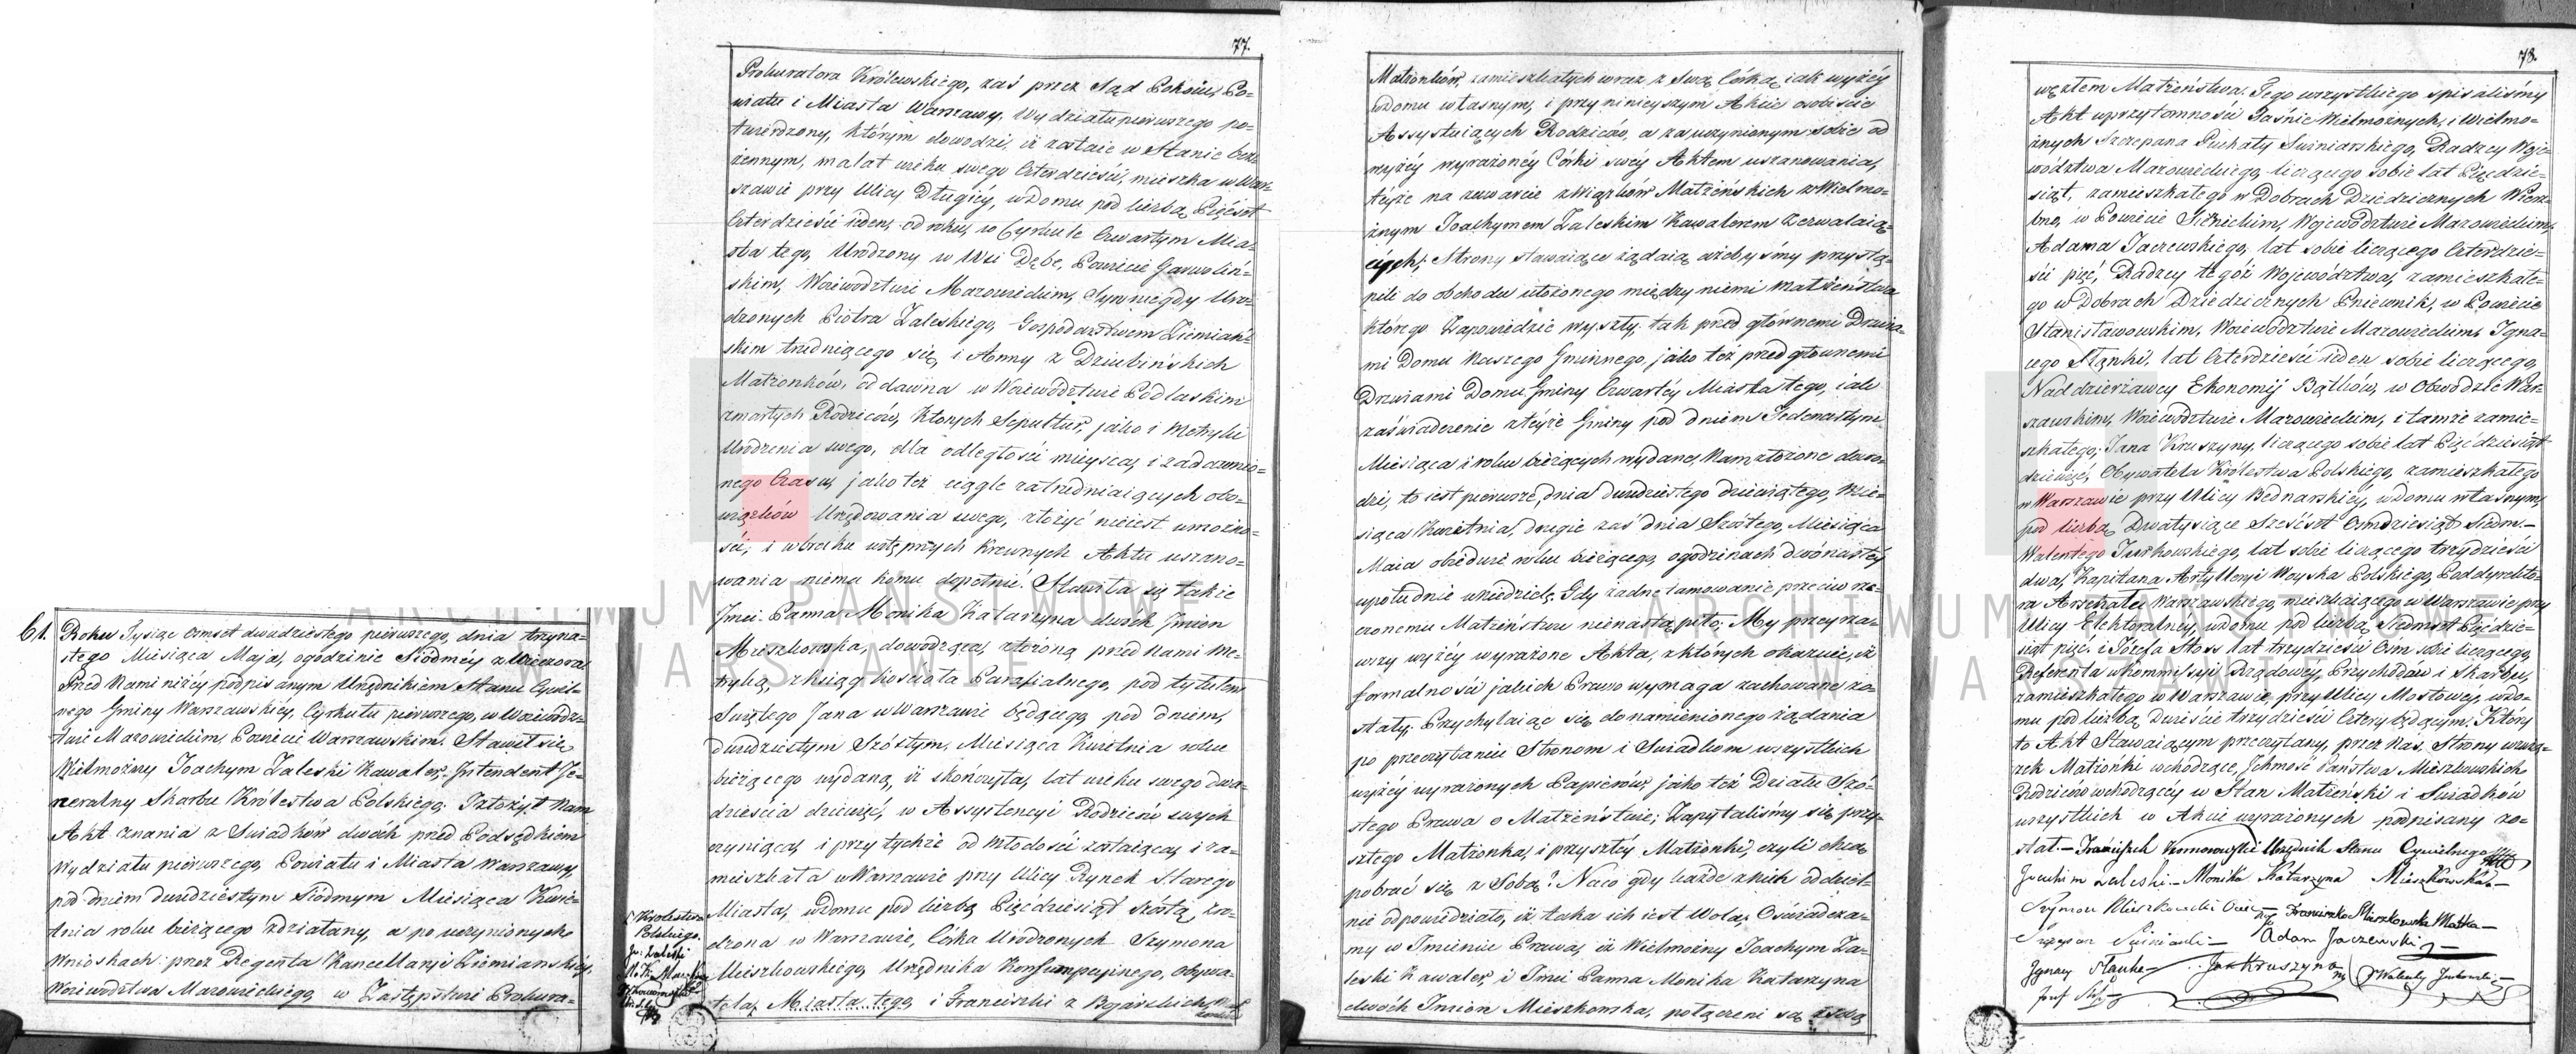 61.
Roku Tysiąc Ośmset dwudziestego pierwszego, dnia trzyna-
stego Miesiąca Maja, o godzinie Siódméy z Wieczora
Przed Nami niżéy podpisanym Urzędnikiem Stanu Cywil-
nego Gminy Warszawskiéy, Cyrkułu pierwszego, w Wojewódz-
twie Mazowieckim, Powiecie Warszawskim. Stawił się
Wielmożny Joachym Zaleski Kawaler, Intendent Je-
neralny Skarbu Królestwa Polskiego; I złożył Nam
Akt znania z Świadków dwóch przed Podsędkiem
Wydziału pierwszego, Powiatu i Miasta Warszawy,
pod dniem dwudziestym Siódmym Miesiąca Kwie-
tnia roku bieżącego zdziałany, a po uczynionych
Wnioskach przez Regenta Kancellaryi Ziemiańskiéy
Województwa Mazowieckiego w Zastępstwie Prokura-
77.
Prokuratora Królewskiego, zaś przez Sąd Pokoiu Po-
wiatu i Miasta Warszawy, Wydziału pierwszego po-
twierdzony, którym dowodzi, iż zostaie w Stanie bez-
żennym, ma lat wieku swego Czterdzieści, mieszka w War-
szawie przy Ulicy Długiéy, w domu pod liczbą Pięćset
Czterdzieści ieden, od roku, w Cyrkule Czwartym Mia-
sta tego, Urodzony w Wsi Dębe, Powiecie Garwoliń-
skim, Woiewództwie Mazowieckim, Syn niegdy Uro-
dzonych Piotra Zaleskiego, Gospodarstwem Ziemiań-
skim trudniącego się, i Anny z Dziubińskich
Małżonków, od dawna w Woiewództwie Podlaskim
zmarłych Rodziców, których Sepultur, jako i Metryki
Urodzenia swego, dla odległości mieysca, i zadawnio-
nego Czasu, jako też ciągle zatrudniaiących obo-
wiązków Urzędowania swego, złożyć nieiest w możno-
ści, i w braku wstępnych krewnych Aktu uszano-
wania niema komu dopełnić. Stawiła się także
Jmci Panna Monika Katarzyna dwóch Jmion
Mieszkowska, dowodząca, złożoną przed Nami me-
tryką, z ksiąg kościoła Parafialnego, pod tytułem
Świętego Jana w Warszawie będącego pod dniem,
dwudziestym Szóstym, Miesiąca Kwietnia roku
bieżącego wydaną, iż skończyła, lat wieku swego dwa-
dzieścia dziewięć, w Assystencyi Rodziców swych
czyniąca, i przy tychże od młodości zostaiąca, i za-
mieszkała w Warszawie przy Ulicy Rynek Starego
Miasta, w domu pod liczbą Pięćdziesiąt Szóstą, Uro-
dzona w Warszawie, Córka Urodzonych Szymona
Mieszkowskiego, Urzędnika Konsumpcyinego, Obywa-
tela, Miasta tego, i Franciszki z Bogaickich
Królestwa
Polskiego.
Jo: Zaleski
Małżonków, zamieszkałych wraz z Swą Córką iak wyżéy
w domu własnym, i przy ninieyszym Akcie osobiście
Assystuiących Rodziców, a za uczynionym sobie od
wyżéy wyrażonéy Córki swéy Aktem uszanowania,
téyże na zawarcie związków Małżeńskich z Wielmo-
żnym Joachymem Zaleskim Kawalerem zezwalaią-
cych; Strony stawaiące żądaią ażebyśmy przystą-
pili do obchodu ułożonego między niemi małżeństwa
którego Zapowiedzie wyszły, tak przed głównemi Drzwia-
mi Domu Naszego Gminnego, jako też przed głównemi
Drzwiami Domu Gminy Czwartéy Miasta tego, iak
zaświadczenie z téyże Gminy pod dniem Jedenastym
Miesiąca i roku bieżących wydane, Nam złożone dowo-
dzi, to iest pierwsze, dnia dwudziestego dziewiątego, Mie-
siąca Kwietnia, drugie zaś dnia Szóstego, Miesiąca
Maia obiedwie roku bieżącego, o godzinach dwónastéy
w południe w niedzielę. Gdy żadne tamowanie przeciw rze-
czonemu Małżeństwu nienastąpiło; My przeyrza-
wszy wyżéy wyrażone Akta, z których okazuie, iż
formalności jakich Prawo wymaga zachowane zo-
stały; Przychylaiąc się do namienionego żądania
po przeczytaniu Stronom i Świadkom wszystkich
wyżéy wyrażonych Papierów, jako też Działu Szó-
stego Prawa o Małżeństwie; Zapytaliśmy się przy-
szłego Małżonka, i przyszłéy Małżonki, czyli chcą
pobrać się z Sobą? Na co gdy każde z nich oddziel-
nie odpowiedziało, iż taka ich iest Wola; Oświadcza-
my w Jmieniu Prawa, iż Wielmożny Joachym Za-
leski Kawaler, i Jmci Panna Monika Katarzyna
dwóch Jmion Mieszkowska, połączeni są z sobą
78.
węzłem Małżeństwa. Tego wszystkiego spisaliśmy
Akt w przytomności Jaśnie Wielmożnych, i Wielmo-
żnych Szczepana Puchały Świniarskiego, Radzcy Woje-
wództwa Mazowieckiego, liczącego sobie lat Pięćdzie-
siąt, zamieszkałego w Dobrach Dziedzicznych Wierz-
bno, w Powiecie Siennickim, Województwie Mazowieckim,
Adama Jaczewskiego, lat sobie liczącego Czterdzie-
ści pięć, Radzcy tegóż Województwa, zamieszkałe-
go w Dobrach Dziedzicznych Pniewnik, w Powiecie
Stanisławowskim, Woiewództwie Mazowieckim, Igna-
cego Stanki, lat Czterdzieści ieden sobie liczącego,
Naddzierżawcy Ekonomij Bątków, w Obwodzie War-
szawskim, Woiewództwie Mazowieckim, i tamże zamie-
szkałego; Jana Kruszyny, liczącego sobie lat Pięćdziesiąt
dziewięć, Obywatela Królestwa Polskiego, zamieszkałego
w Warszawie przy Ulicy Bednarskiéy, w domu własnym,
pod liczbą Dwa tysiące Sześćset Ośmdziesiąt Siedm.—
Walentego Jurkowskiego, lat sobie liczącego trzydzieści
dwa, Kapitana Artylleryi Woyska Polskiego, Poddyrekto-
ra Arsenału Warszawskiego, mieszkaiącego w Warszawie przy
Ulicy Elektoralnéy, w domu pod liczbą Siedmset Pięćdzie-
siąt pięć, i Józefa Stoss lat trzydzieści Ośm sobie liczącego,
Referenta w Kommissyi Rządowéy, Przychodów i Skarbu,
zamieszkałego w Warszawie, przy Ulicy Mostowéy, w do-
mu pod liczbą Dwieście trzydzieści Cztery będącym. Który
to Akt Stawaiącym przeczytany, przez Nas, Strony w zwią-
zek Małżeński wchodzące, Ichmość Państwa Mieszkowskich
Rodziców wchodzącéy w Stan Małżeński i Świadków
wszystkich w Akcie wyrażonych podpisany zo-
stał.— Franciszek Urzędnik Stanu Cywilnego
Joachim Zaleski.— Monika Katarzyna Mieszkowska.—
Szymon Mieszkowski Ociec Franciszka Mieszkowska Matka—
Szczepan Świniarski— Adam Jaczewski—
Ignacy Stanke— Jan Kruszyna Walenty Jurkowski—
Jozef Stoss
ARCHIWUM PAŃSTWOWE
W WARSZAWIE
ARCHIWUM PAŃSTWOWE
W WARSZAWIE